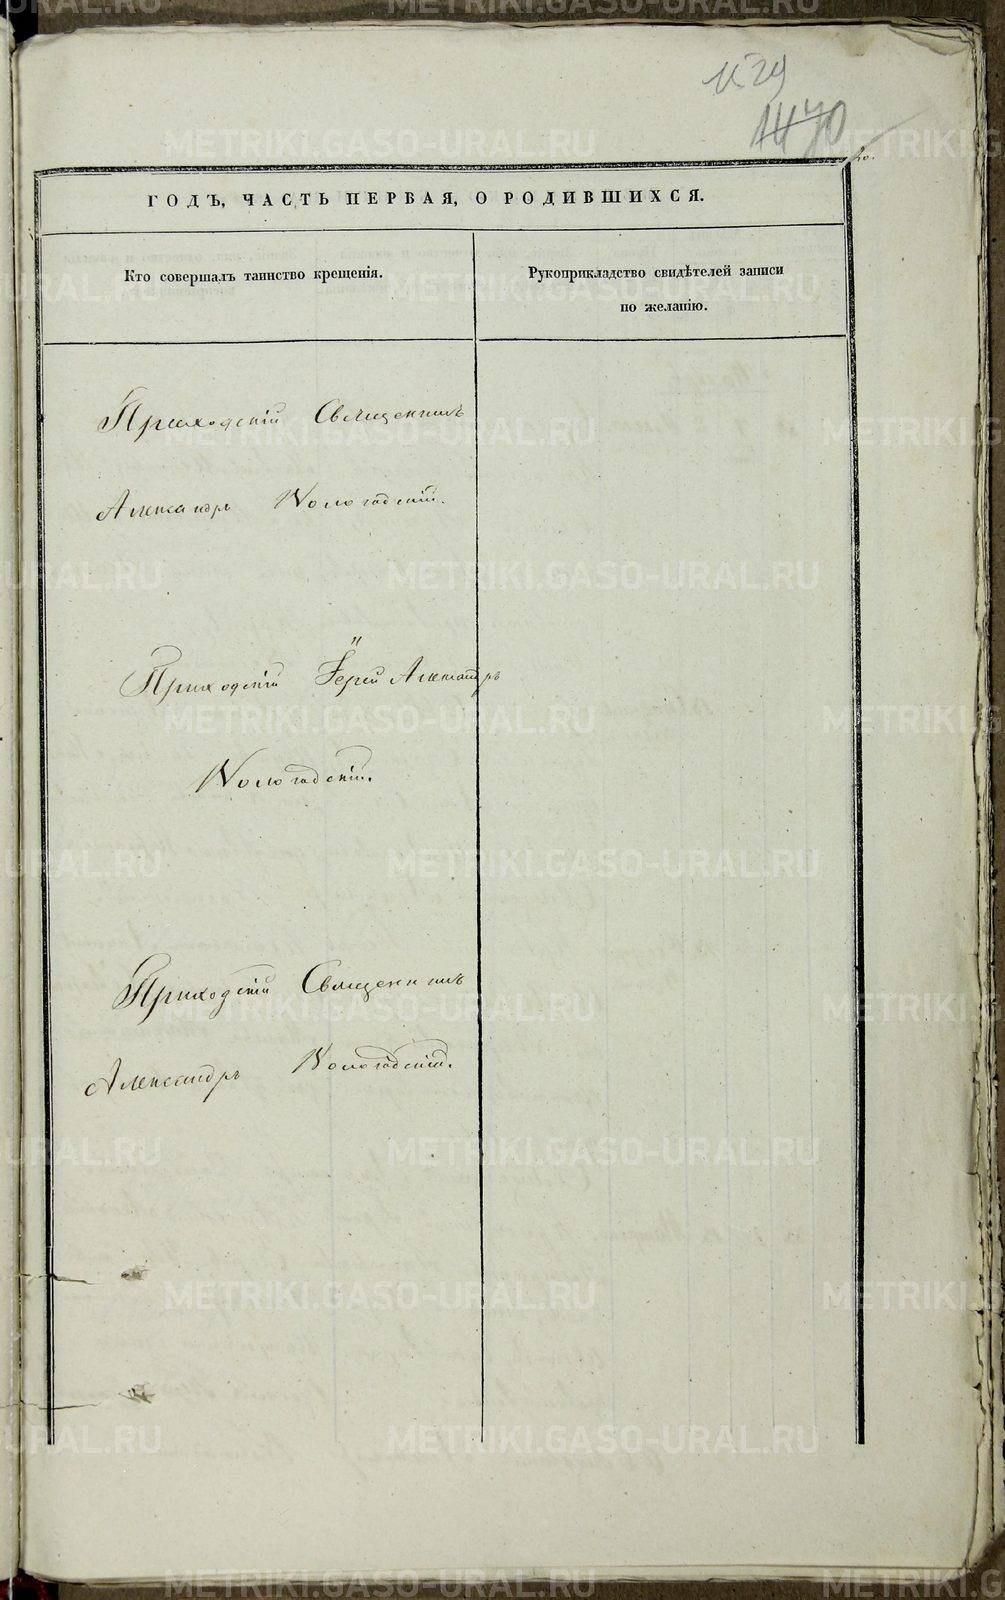 1129
1470
20.
ГОДЪ, ЧАСТЬ ПЕРВАЯ, О РОДИВШИХСЯ.
Кто совершалъ таинство крещенія.
Рукоприкладство свидѣтелей записи
по желанію.
Приходскій Священникъ
Александръ Вологодскій.
Приходскій Іерей Александръ
Вологодскій.
Приходскій Священникъ
Александръ Вологодскій.
METRIKI.GASO-URAL.RU